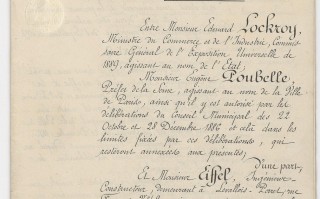 Entre Monsieur Edouard Lockroy,
Ministre du Commerce et de l'Industrie, Commis-
saire Général de l'Exposition Universelle de
1889, agissant au nom de l'Etat,
Monsieur Eugène Poubelle,
Préfet de la Seine, agissant au nom de la Ville
de Paris, ainsi qu'il y est autorisé par les
délibérations du Conseil Municipal des 22
Octobre et 28 Décembre 1886 et cela dans les
limites fixées par ces délibérations, qui
resteront annexées aux présentes;
D'une part,
Et Monsieur Eiffel, Ingénieur-
Constructeur, demeurant à Levallois-Perret,